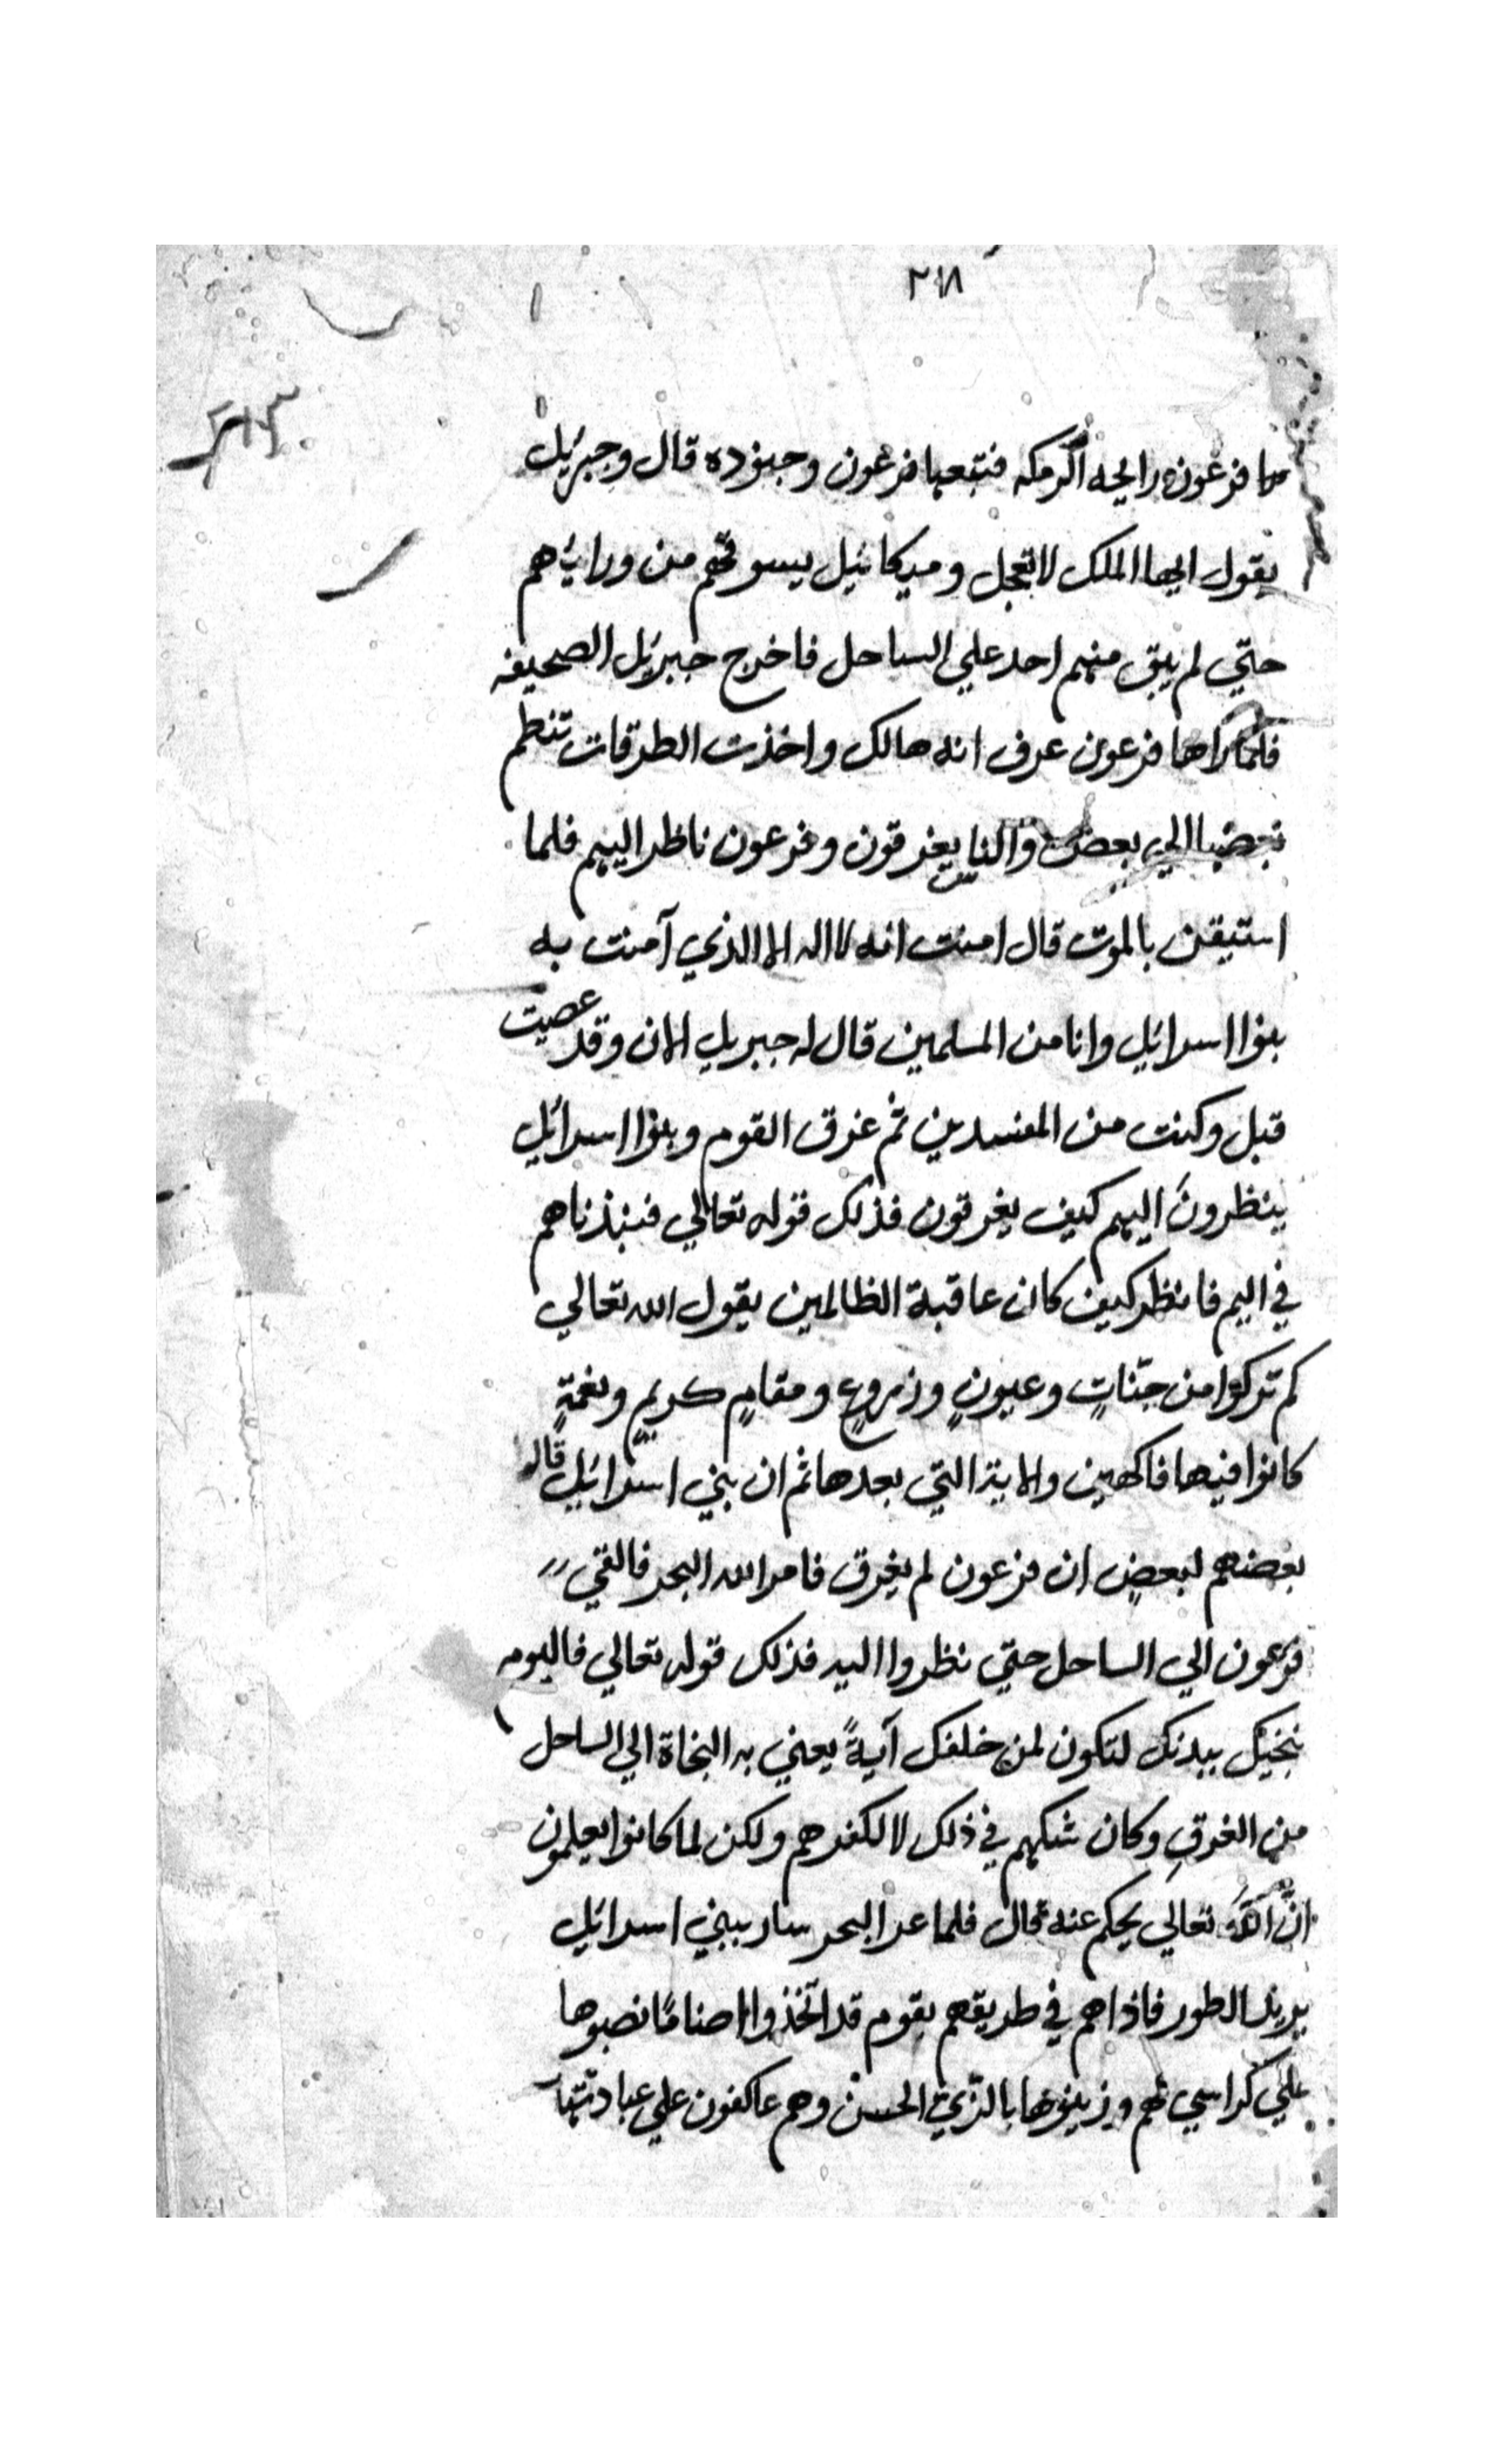 ٢١٨
فرعون رايحه الرمكه فتبعها فرعون وجنوده قال وجبرئيل
يقول ايها الملك لا تعجل وميكائيل يسوقهم من ورائهم
حتي لم يبق منهم احد علي الساحل فاخرج جبرئيل الصحيفه
فلما راها فرعون عرف انه هالك واخذت الطرقات تنظم
بعضها الي بعض والناس يغرقون وفرعون ناظر اليهم فلما
استيقن بالموت قال امنت انه لا اله الا الذي آمنت به
بنوا اسرائيل وانا من المسلمين قال له جبريل الان وقد عصيت
قبل وكنت من المفسدين ثم غرق القوم وبنوا اسرائيل
ينظرونَ اليهم كيف يغرقون فذلك قوله تعالي فنبذناهم
في اليم فانظر كيف كان عاقبة الظالمين يقول الله تعالي
كم تركوا من جنّاتٍ وعيونٍ وزروعٍ ومقامٍ كريمٍ ونعمةٍ
كانوا فيها فاكهين والاية التي بعدها ثم ان بني اسرائيل قال
بعضهم لبعضٍ ان فرعون لم يغرق فامر الله البحر فالقي
فرعون الي الساحل حتي نظروا اليه فذلك قوله تعالي فاليوم
ننجيك ببدنك لتكون لمن خلفك آيةً يعني به النجاة الي الساحل
من الغرقِ وكان شكهم في ذلك لا لكفرهم ولكن لما كانوا يعلمون
انَّ اللّهَ تعالي يحكم عنه قال فلما عبر البحر سار ببني اسرائيل
يريد الطور فاذا هم في طريقهم بقوم قد اتّخذوا اصنامًا نصبوها
علي كراسي لهم وزينوها بالزّي الحسن وهم عاكفون علي عبادتها